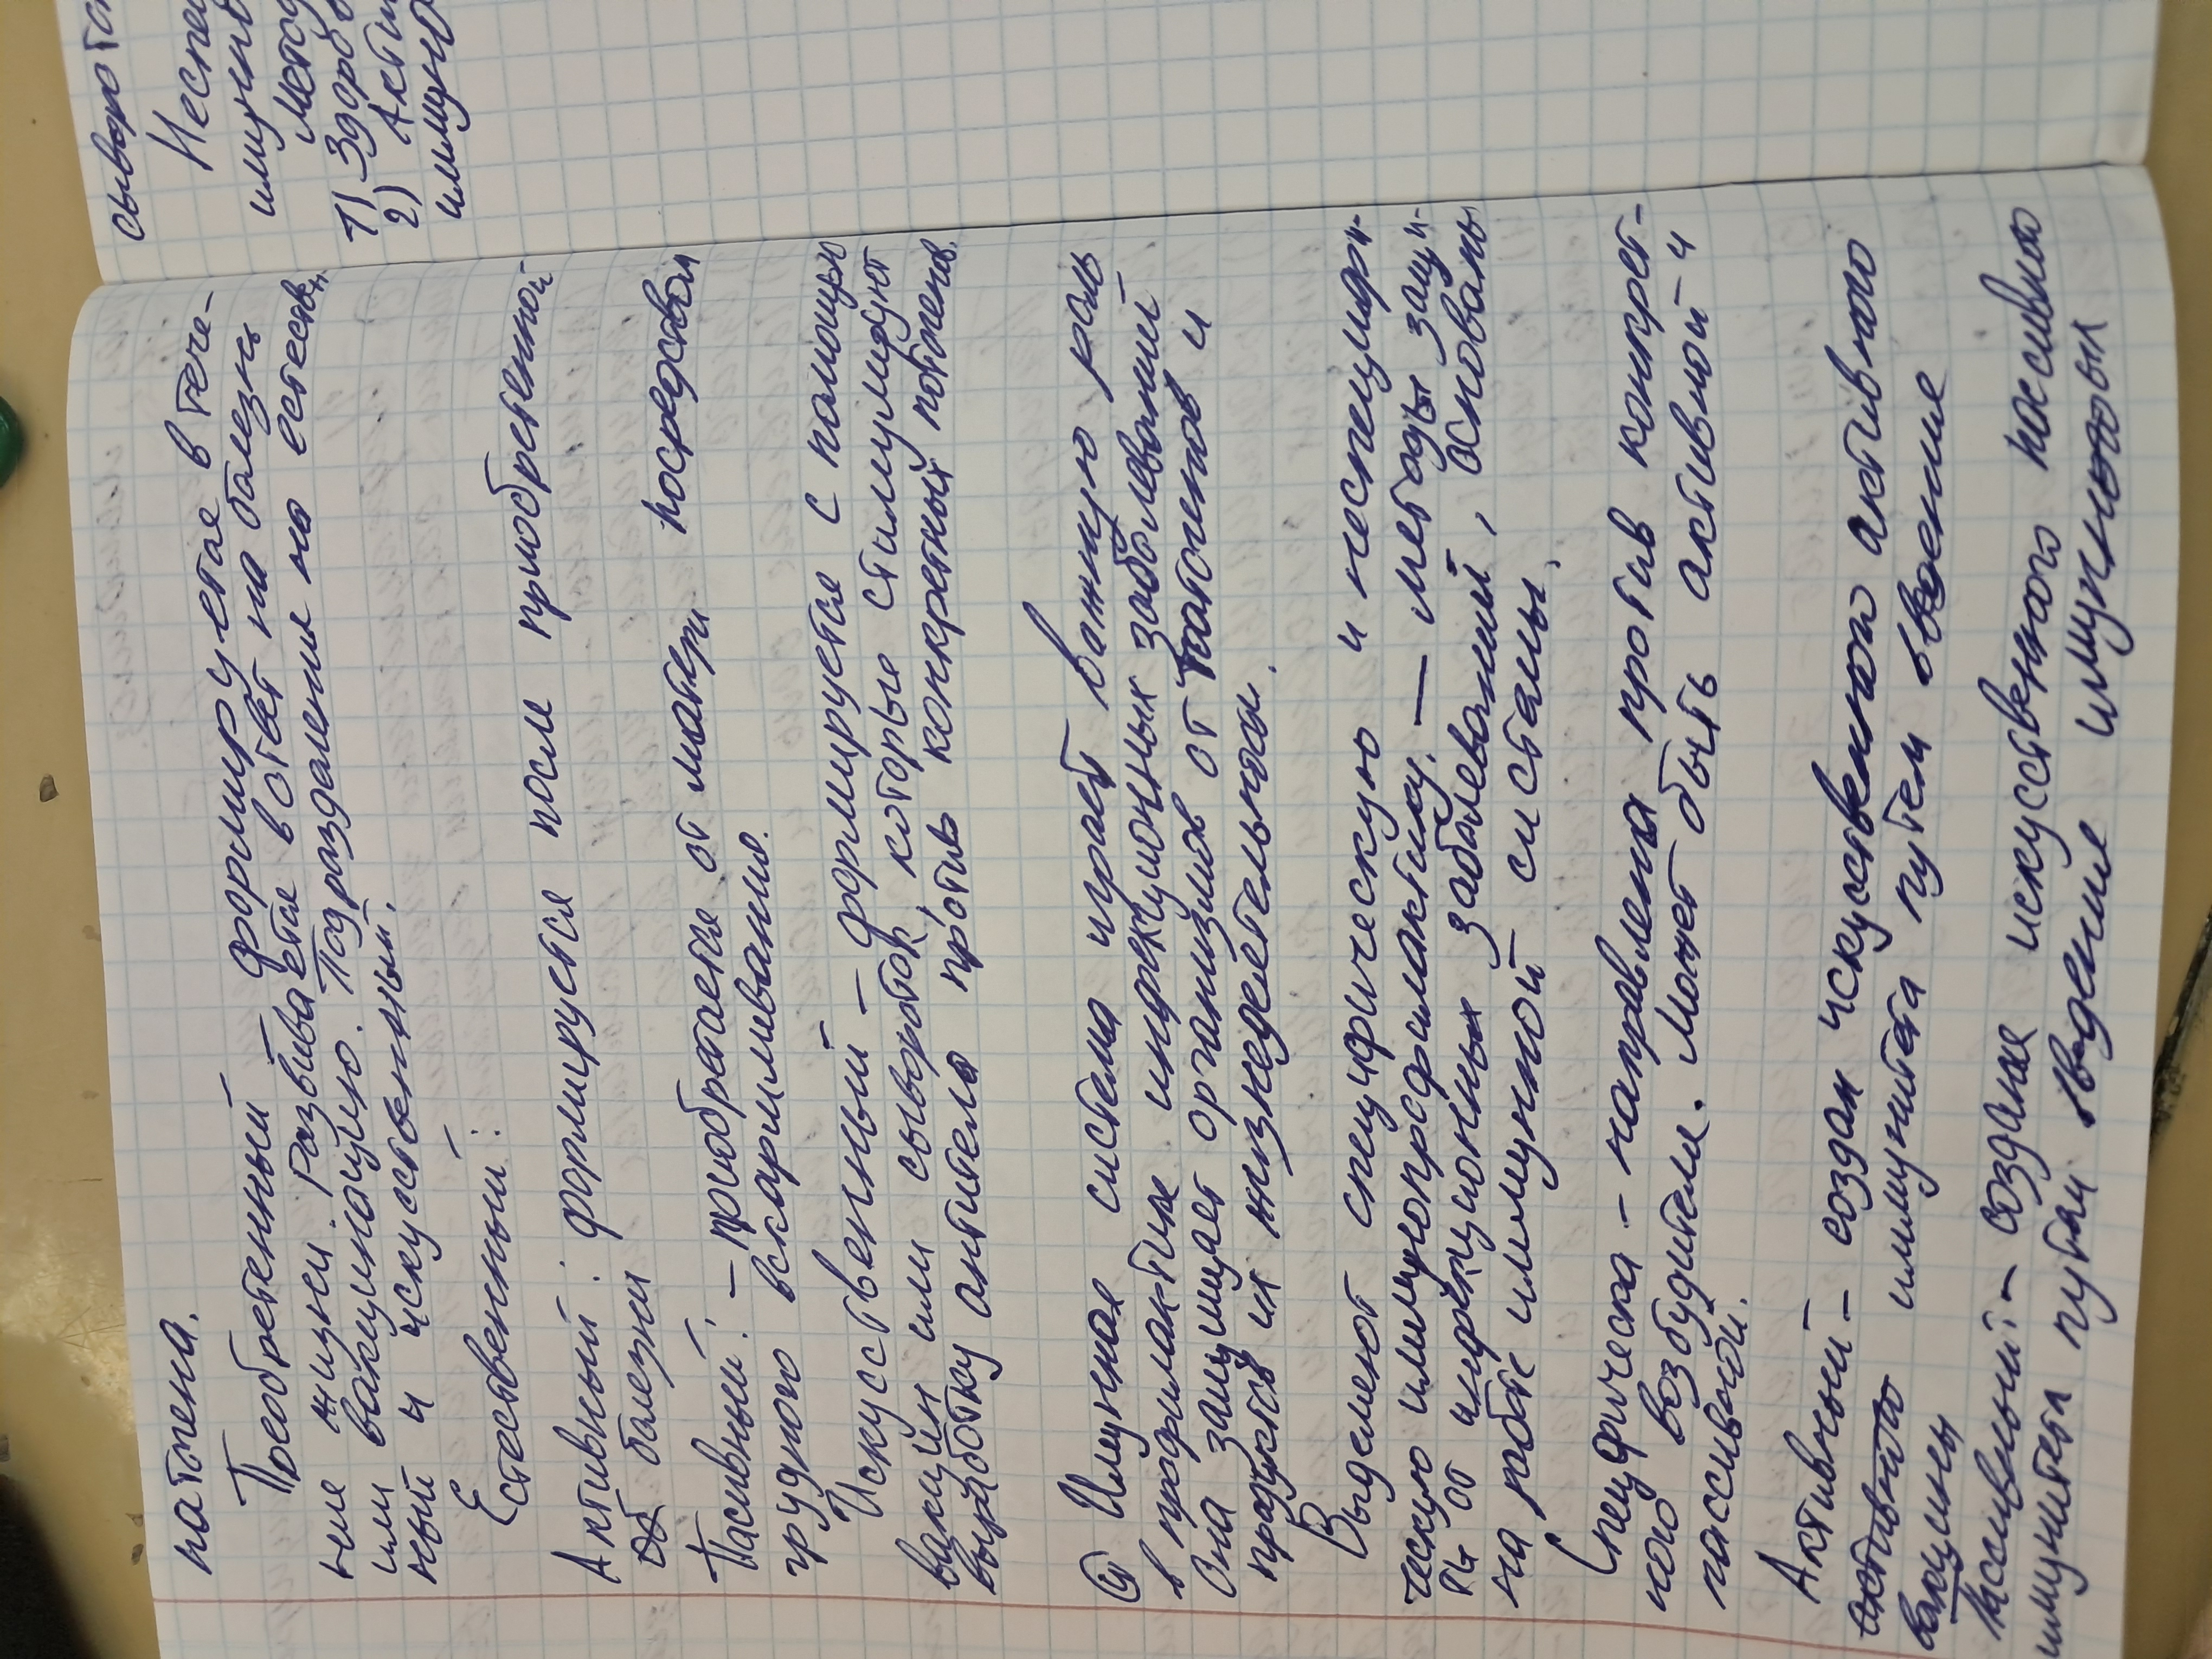 патогена.
Преобретенный формируетая в тече-
ние жизни. Развивается в ответ на болезнь
или вакцинацию. Подразделения на естеств
ный и искусственный.
Естественный:
Активный: формируется после приобретенной
болезни
Пасивный: - приобретается от матери посредством
грудного вскармливания.
Искусственный - формируется с помощью
вакцин или сывороток, которые стимулируют
выработку антител против конкретный патогенов.
Имунная система играет важную роль
в профилактике инфекционных заболеваний
Она защищает организмов от патогенов и
продуктов их жизнедеятельности.
Выделяют специфическую и неспецифи-
ческую иммунопрофилактику. - методы защи-
ты от инфекционных заболеваний, основаны
на работе иммунной системы.
Специфическа - направлена против конкрет-
ного возбудителя. Может быть активной и
пассивной.
Активный - создан искуственного активного
активного иммунитета путем введение
вакцины
Пассивный - создание искусственного пассивного
иммунитета путём введение иммуновых
сыворот
Неспец
имунно
Метод
1) Здоров
2) Акти
иммуно